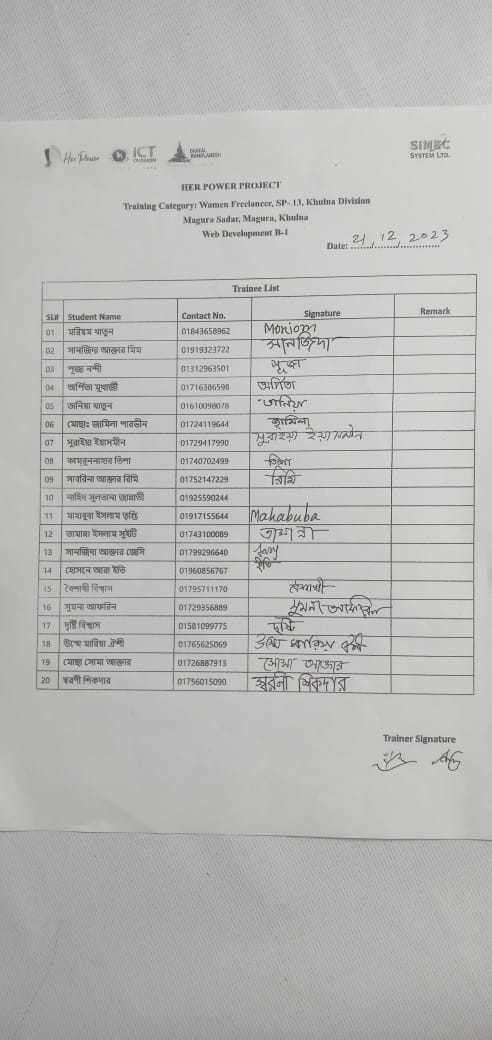 Her Power
ICT DIVISION
DIGITAL BANGLADESH
SIMEC
SYSTEM LTD.
HER POWER PROJECT
Training Category: Women Freelancer, SP- 13, Khulna Division
Magura Sadar, Magura, Khulna
Web Development B-1
Date: 21, 12, 2023
Trainee List
SL# Student Name Contact No. Signature Remark
01 মরিয়ম খাতুন 01843658962 Moniom
02 সানজিদা আক্তার মিম 01919323722 সানজিদা
03 পূজা নন্দী 01312963501 পূজা
04 অর্পিতা মুখার্জী 01716386598 অর্পিতা
05 তানিয়া খাতুন 01610098078 তানিয়া
06 মোছাঃ জামিলা পারভীন 01724119644 জামিলা
07 সুরাইয়া ইয়াসমীন 01729417990 সুরাইয়া ইয়াসমীন
08 কামরুননাহার তিশা 01740702499 তিশা
09 সাবরিনা আক্তার রিমি 01752147229 রিমি
10 নাহিদ সুলতানা 01925590244
11 মাহাবুবা ইসলাম তৃপ্তি 01917155644 Mahabuba
12 তামান্না ইসলাম সুইটি 01743100089 তামান্না
13 সানজিদা আক্তার জেসি 01799296640
14 হোসনে আরা ইতি 01960856767 ইতি
15 বৈশাখী বিশ্বাস 01795711170 বৈশাখী
16 সুমনা আফরিন 01729356889 সুমনা আফরিন
17 দৃষ্টি বিশ্বাস 01581099775 দৃষ্টি
18 উম্মে মারিয়া ঐশী 01765625069 উম্মে মারিয়া ঐশী
19 মোছা সোমা আক্তার 01726887913 সোমা আক্তার
20 স্বরণী শিকদার 01756015090 স্বরনী শিকদার
Trainer Signature